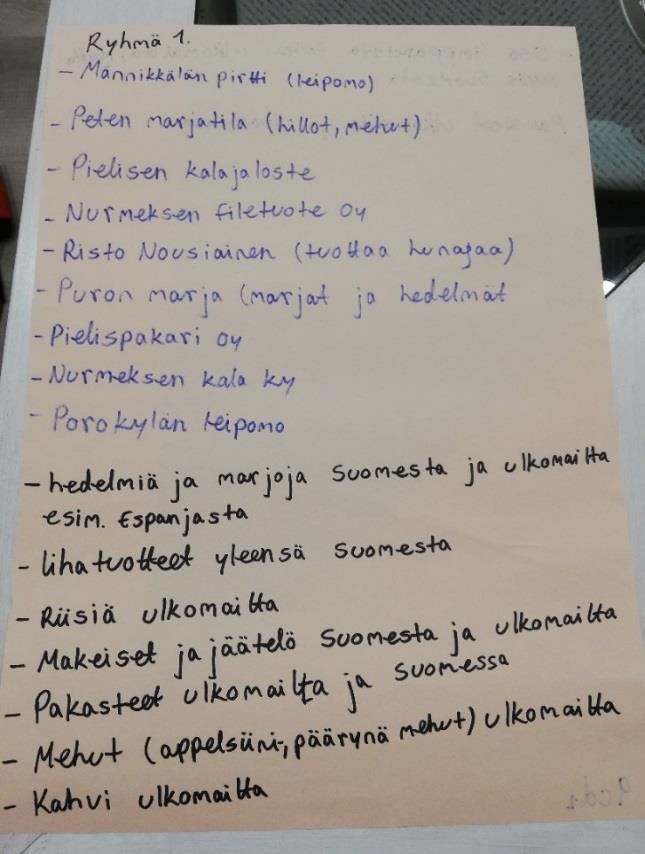 Ryhmä 1.
- Männikkälän pirtti (leipomo)
- Peten marjatila (hillot, mehut)
- Pielisen kalajaloste
- Nurmeksen filetuote Oy
- Risto Nousiainen (tuottaa hunajaa)
- Puron marja (marjat ja hedelmät
- Pielispakari Oy
- Nurmeksen kala Ky
- Porokylän leipomo
- hedelmiä ja marjoja Suomesta ja ulkomailta
esim. Espanjasta
- lihatuotteet yleensä Suomesta
- Riisiä ulkomailta
- Makeiset ja jäätelö Suomesta ja ulkomailta
- Pakasteet ulkomailta ja suomessa
- Mehut (appelsiini-, päärynä mehut) ulkomailta
- Kahvi ulkomailta